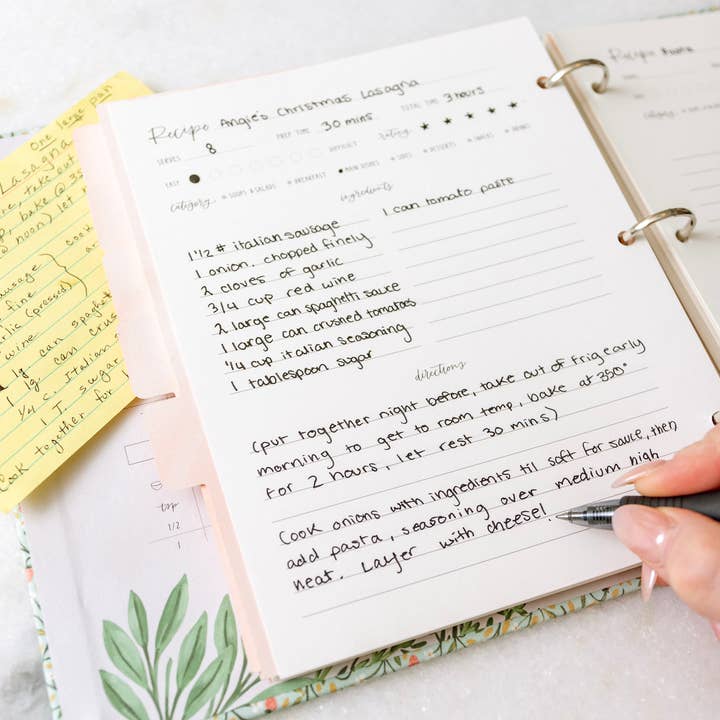 Recipe Angie's Christmas Lasagna
SERVES 8 PREP TIME 30 mins TOTAL TIME 3 hours
EASY DIFFICULT rating: ★ ★ ★ ★ ★
category SOUPS & SALADS BREAKFAST MAIN DISHES SIDES DESSERTS SNACKS DRINKS
ingredients
1 1/2 # italian sausage
1 onion, chopped finely
2 cloves of garlic
3/4 cup red wine
2 large can spaghetti sauce
1 large can crushed tomatoes
1/4 cup italian seasoning
1 tablespoon sugar
1 can tomato paste
directions
(put together night before, take out of frig early
morning to get to room temp, bake at 350°
for 2 hours, let rest 30 mins)
Cook onions with ingredients til soft for sauce, then
add pasta, seasoning over medium high
heat. Layer with cheese!
One large pan
Lasagna
take out
bake @
noon) let
sausage
fine
(pressed)
wine
1g can spaghet
1 lg. can crus
1/4 c. Italian s
1 T. sugar
Cook together for
cook
tsp
1/2
1
Recipe
category